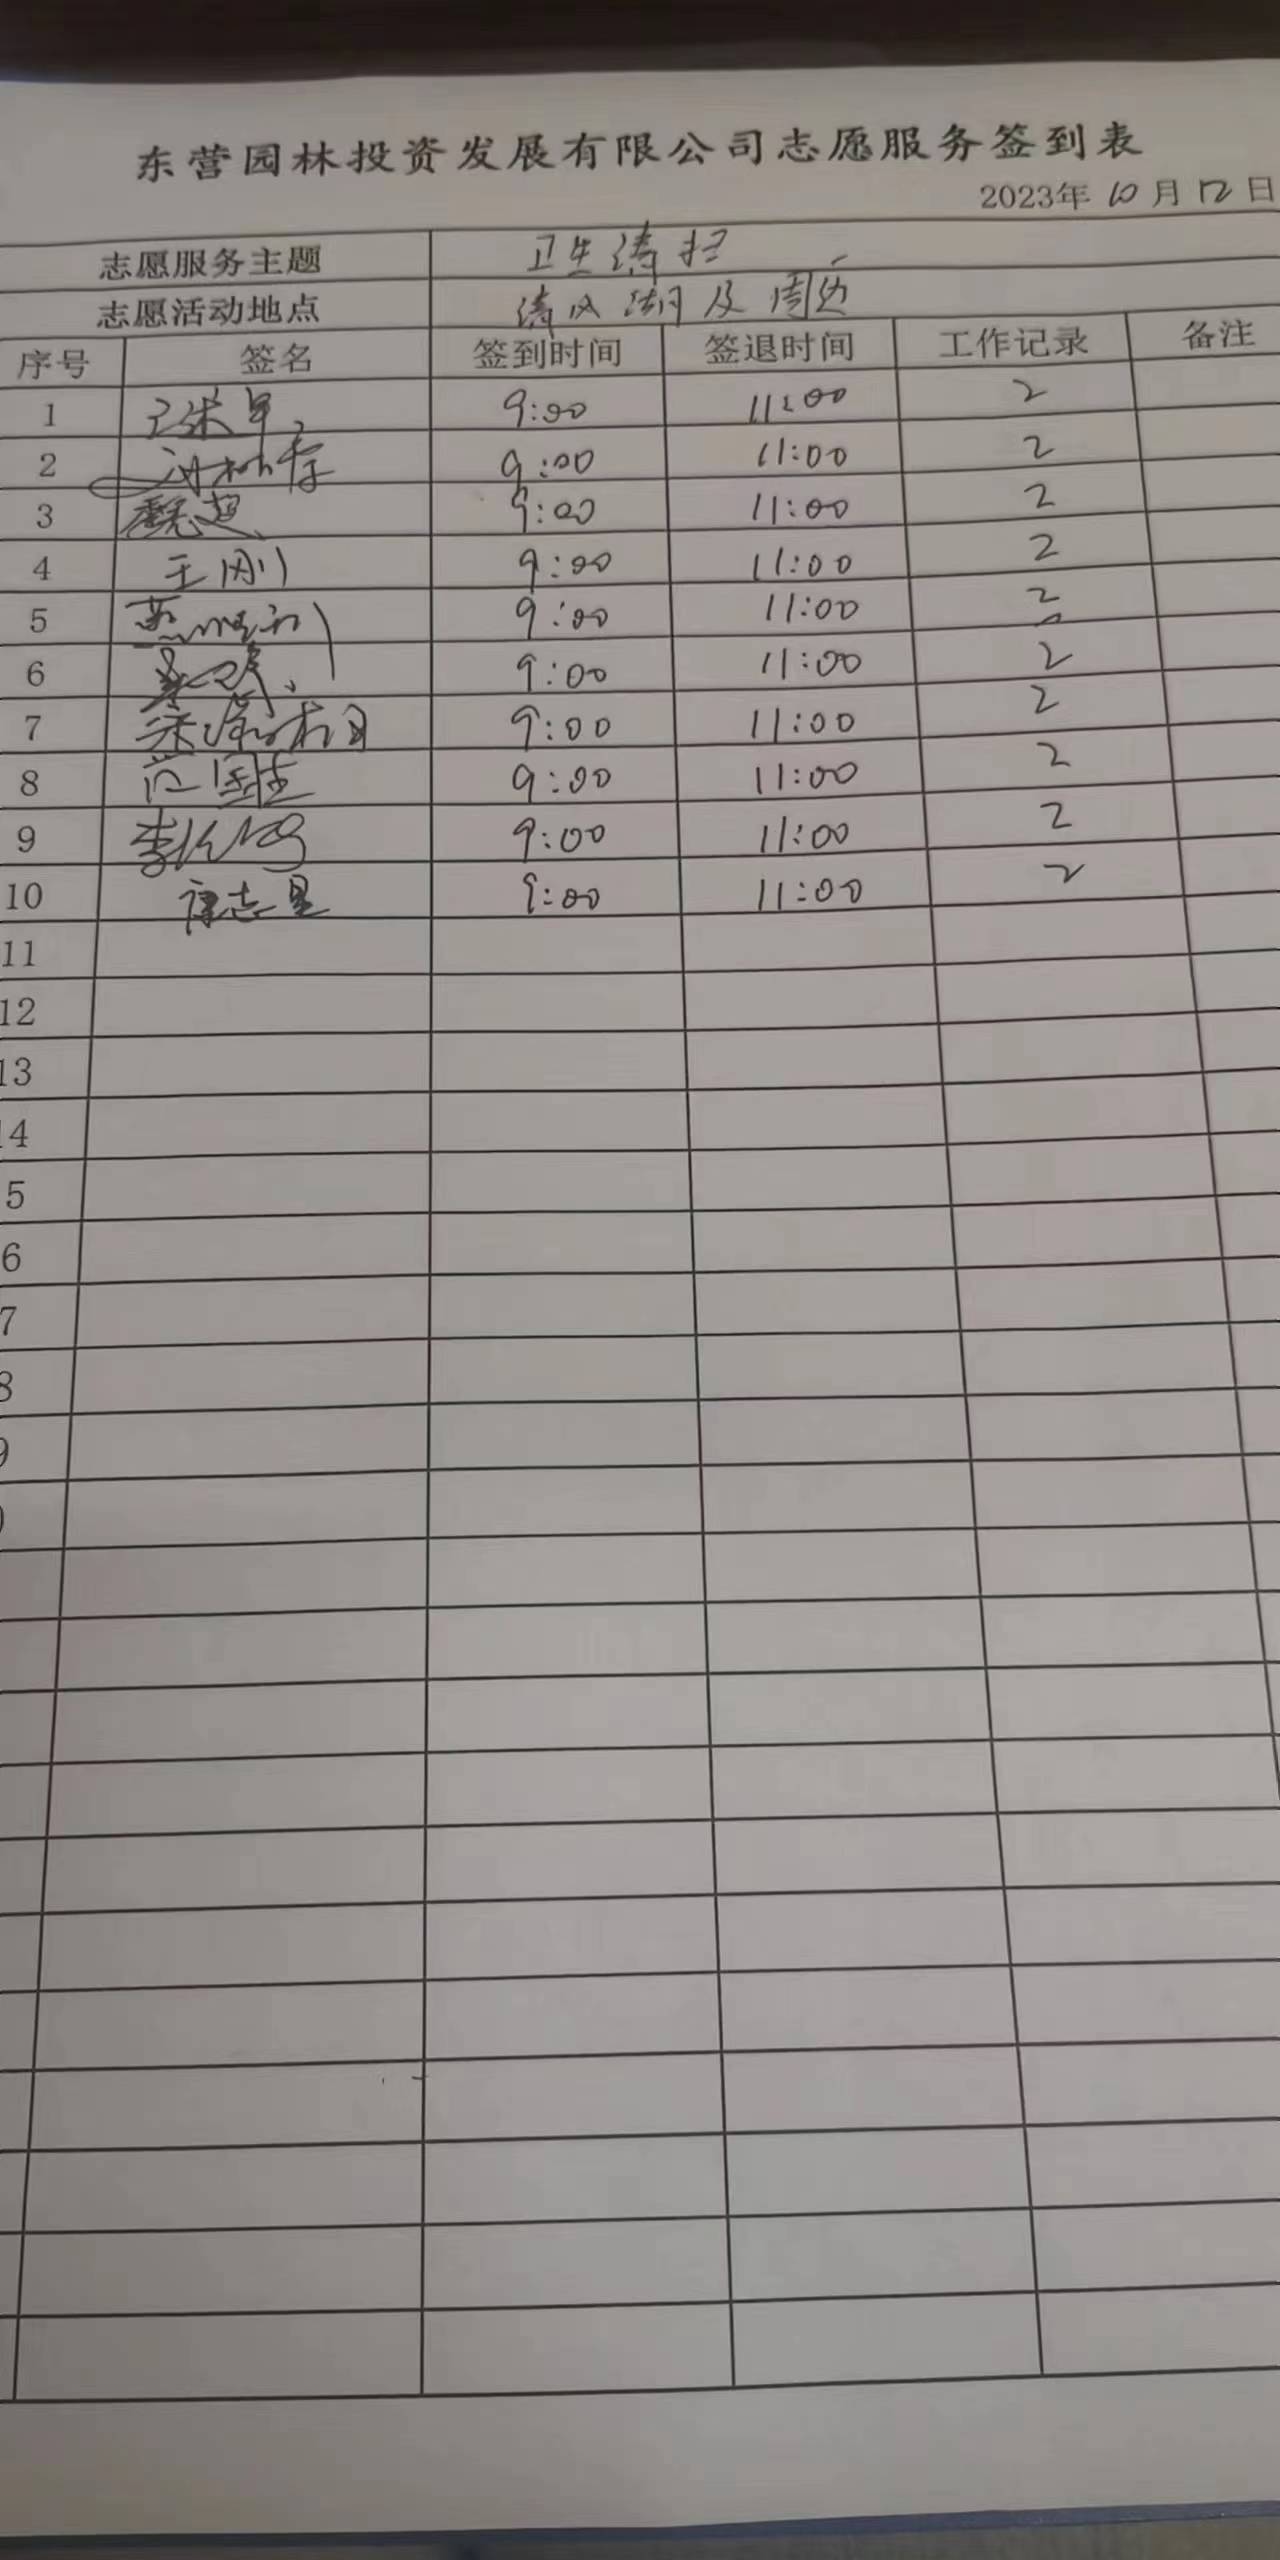 东营园林投资发展有限公司志愿服务签到表
2023年 10 月 12 日
志愿服务主题 卫生清扫
志愿活动地点 清风湖及周边
序号 签名 签到时间 签退时间 工作记录 备注
1 9:00 11:00 2
2 9:00 11:00 2
3 魏超 9:00 11:00 2
4 王刚 9:00 11:00 2
5 9:00 11:00 2
6 9:00 11:00 2
7 9:00 11:00 2
8 范国 9:00 11:00 2
9 李 9:00 11:00 2
10 志星 9:00 11:00 2
11
12
13
14
5
6
7
8
9